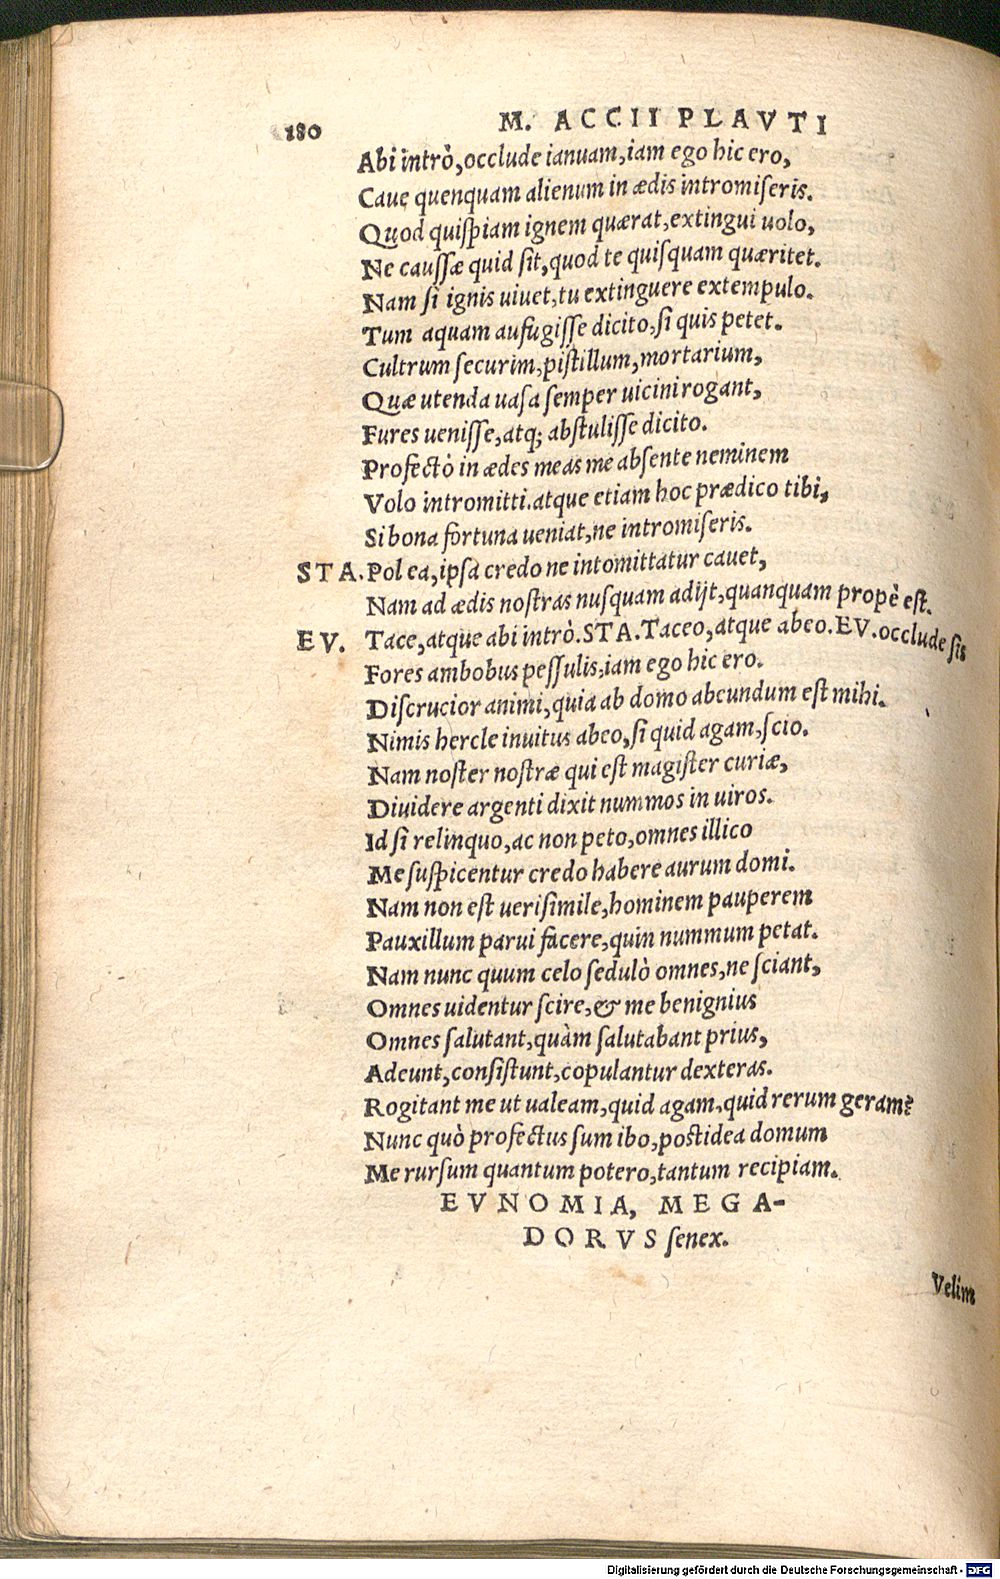 180 M. ACCII PLAVTI
Abi intrò, occlude ianuam, iam ego hic ero,
Caue quenquam alienum in ædis intromiseris.
Quod quispiam ignem quærat, extingui uolo,
Ne caussæ quid sit, quod te quisquam quæritet.
Nam si ignis uiuet, tu extinguere extempulo.
Tum aquam aufugisse dicito, si quis petet.
Cultrum securim, pistillum, mortarium,
Quæ utenda uasa semper uicini rogant,
Fures uenisse, atq; abstulisse dicito.
Profectò in ædes meas me absente neminem
Volo intromitti. atque etiam hoc prædico tibi,
Si bona fortuna ueniat, ne intromiseris.
STA. Pol ea, ipsa credo ne intomittatur cauet,
Nam ad ædis nostras nusquam adijt, quanquam propè est.
EV. Tace, atque abi intrò. STA. Taceo, atque abeo. EV. occlude sis
Fores ambobus pessulis, iam ego hic ero.
Discrucior animi, quia ab domo abeundum est mihi.
Nimis hercle inuitus abeo, si quid agam, scio.
Nam noster nostræ qui est magister curiæ,
Diuidere argenti dixit nummos in uiros.
Id si relinquo, ac non peto, omnes illico
Me suspicentur credo habere aurum domi.
Nam non est uerisimile, hominem pauperem
Pauxillum parui facere, quin nummum petat.
Nam nunc quum celo sedulò omnes, ne sciant,
Omnes uidentur scire, & me benignius
Omnes salutant, quàm salutabant prius,
Adeunt, consistunt, copulantur dexteras.
Rogitant me ut ualeam, quid agam, quid rerum geram?
Nunc quò profectus sum ibo, postidea domum
Me rursum quantum potero, tantum recipiam.
EVNOMIA, MEGA-
DORVS senex.
Velim
Digitalisierung gefördert durch die Deutsche Forschungsgemeinschaft - DFG